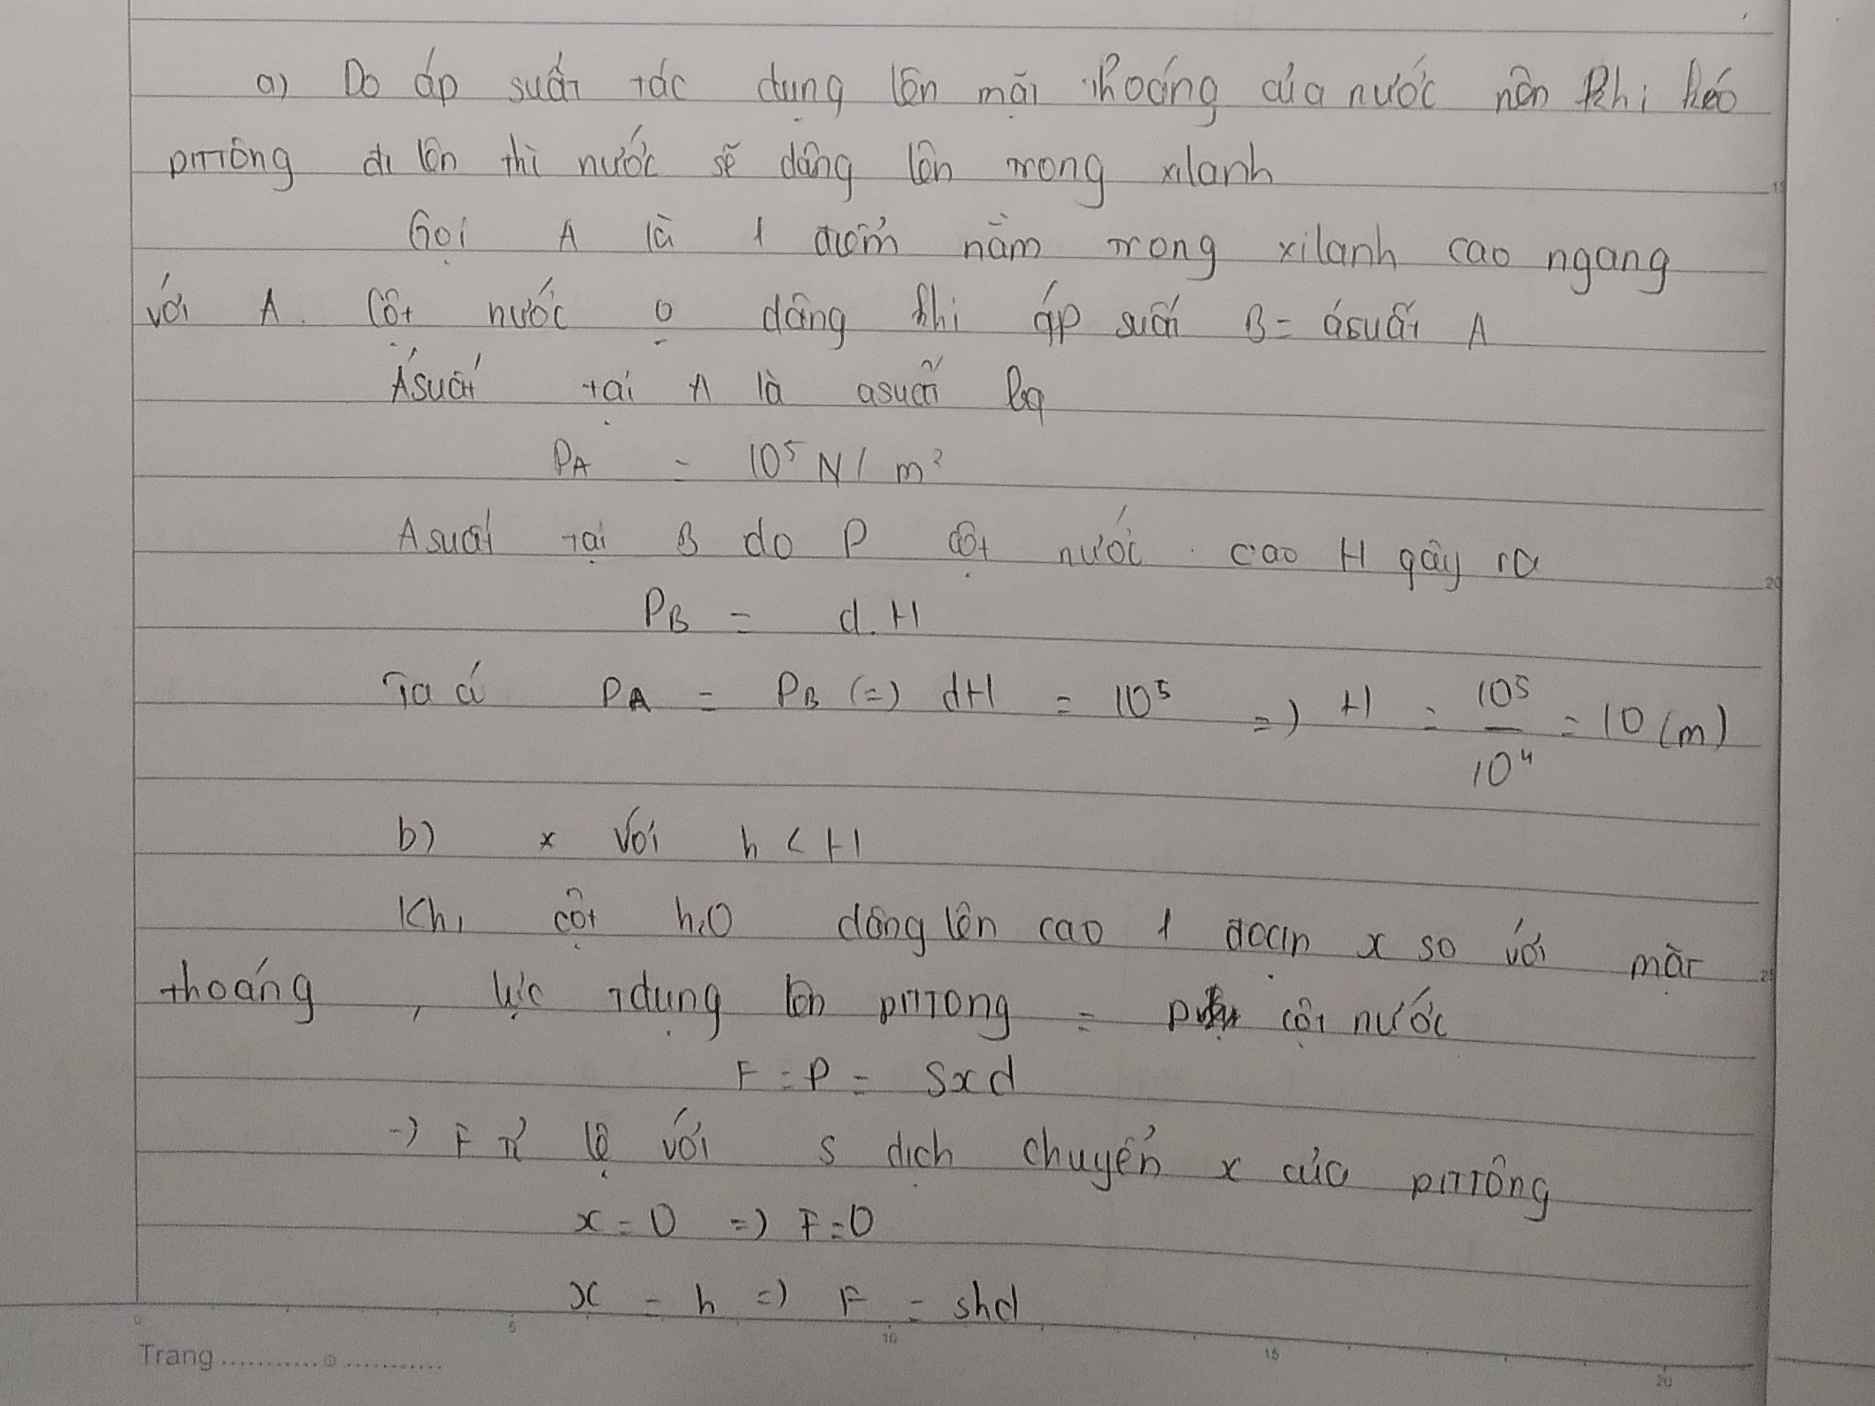 a) Do áp suất tác dụng lên mặt thoáng của nước nên khi kéo
pittông đi lên thì nước sẽ dâng lên trong xilanh
Gọi A là 1 điểm nằm trong xilanh cao ngang
với A. Cột nước o dâng khi áp suất B = ásuất A
Ásuất tại A là asuất kq
PA = 10⁵ N/m²
Asuất tại B do P cột nước cao H gây ra
PB = d.H
Ta có PA = PB (=) dH = 10⁵ =) H = 10⁵/10⁴ = 10 (m)
b) x Với h < H
Khi cột h₂O dâng lên cao 1 đoạn x so với mặt
thoáng, lực tdụng lên pittong = cột nước
F = P = Sxd
-) F tỉ lệ với s dịch chuyển x của pittông
x = 0 =) F = 0
x = h =) F = shd
0 5 10 15 20
Trang